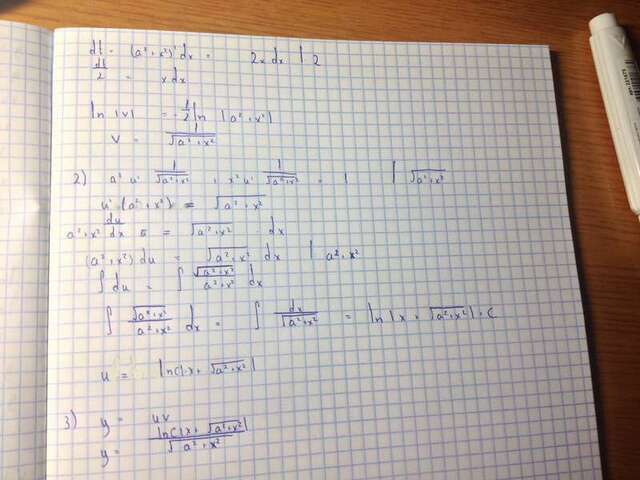 dt = (a² + x²)' dx = 2x dx | 2
dt/2 = x dx
ln |v| = -1/2 ln |a² + x²|
v = 1/√(a² + x²)
2) a² u' 1/√(a² + x²) + x² u' 1/√(a² + x²) = 1 | √(a² + x²)
u' (a² + x²) = √(a² + x²)
a² + x² du/dx = √(a² + x²) · dx
(a² + x²) du = √(a² + x²) dx | a² + x²
∫ du = ∫ √(a² + x²)/(a² + x²) dx
∫ √(a² + x²)/(a² + x²) dx = ∫ dx/√(a² + x²) = ln |x + √(a² + x²)| + C
u = ln C|x + √(a² + x²)|
3) y = uv
y = ln C|x + √(a² + x²)|/√(a² + x²)